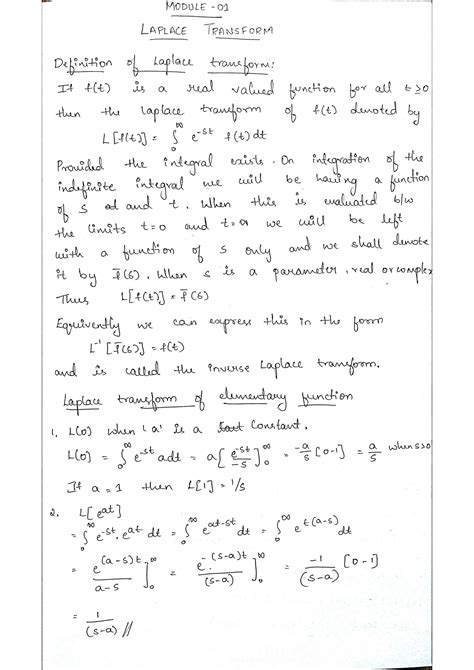 MODULE - 01
LAPLACE TRANSFORM
Definition of Laplace transform:
If f(t) is a real valued function for all t≥0
then the laplace transform of f(t) denoted by
L[f(t)] = ∫₀^∞ e^-st f(t) dt
Provided the integral exists. On integration of the
indefinite integral we will be having a function
of s and t. When this is evaluated b/w
the limits t=0 and t=∞ we will be left
with a function of s only and we shall denote
it by f̄(s). When s is a parameter, real or complex
Thus L[f(t)] = f̄(s)
Equivently we can express this in the form
L⁻¹[f̄(s)] = f(t)
and is called the inverse Laplace transform.
Laplace transform of elementary function
1. L(a) when 'a' is a Constant.
L(a) = ∫₀^∞ e^-st a dt = a[e^-st/-s]₀^∞ = -a/s [0-1] = a/s when s>0
If a = 1 then L[1] = 1/s
2. L[e^at]
= ∫₀^∞ e^-st . e^at dt = ∫₀^∞ e^at-st dt = ∫₀^∞ e^t(a-s) dt
= e^(a-s)t/a-s ]₀^∞ = e^-(s-a)t/(s-a) ]₀^∞ = -1/(s-a) [0-1]
= 1/(s-a) //